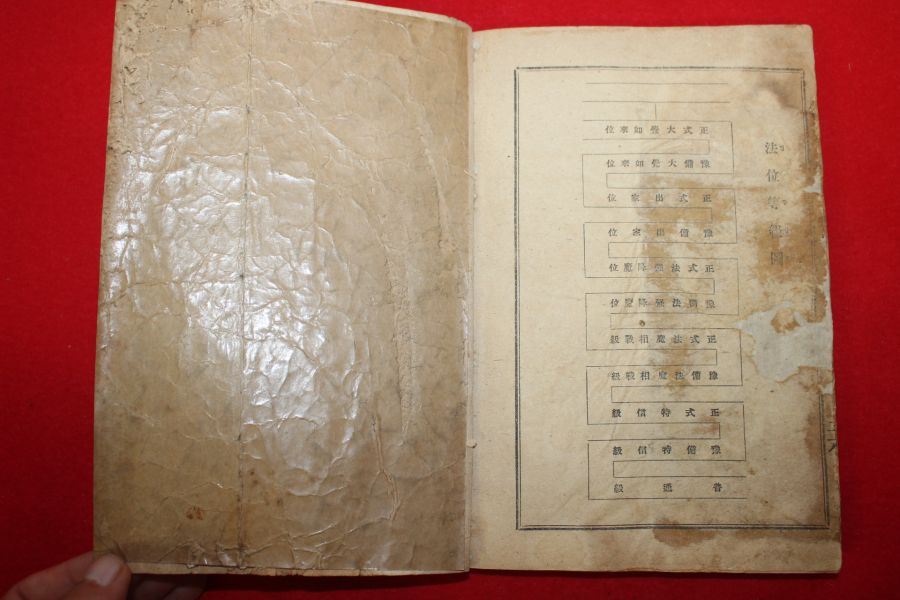 法位等級圖
正式大覺如來位
豫備大覺如來位
正式出家位
豫備出家位
正式法强降魔位
豫備法强降魔位
正式法魔相戰級
豫備法魔相戰級
正式特信級
豫備特信級
普通級